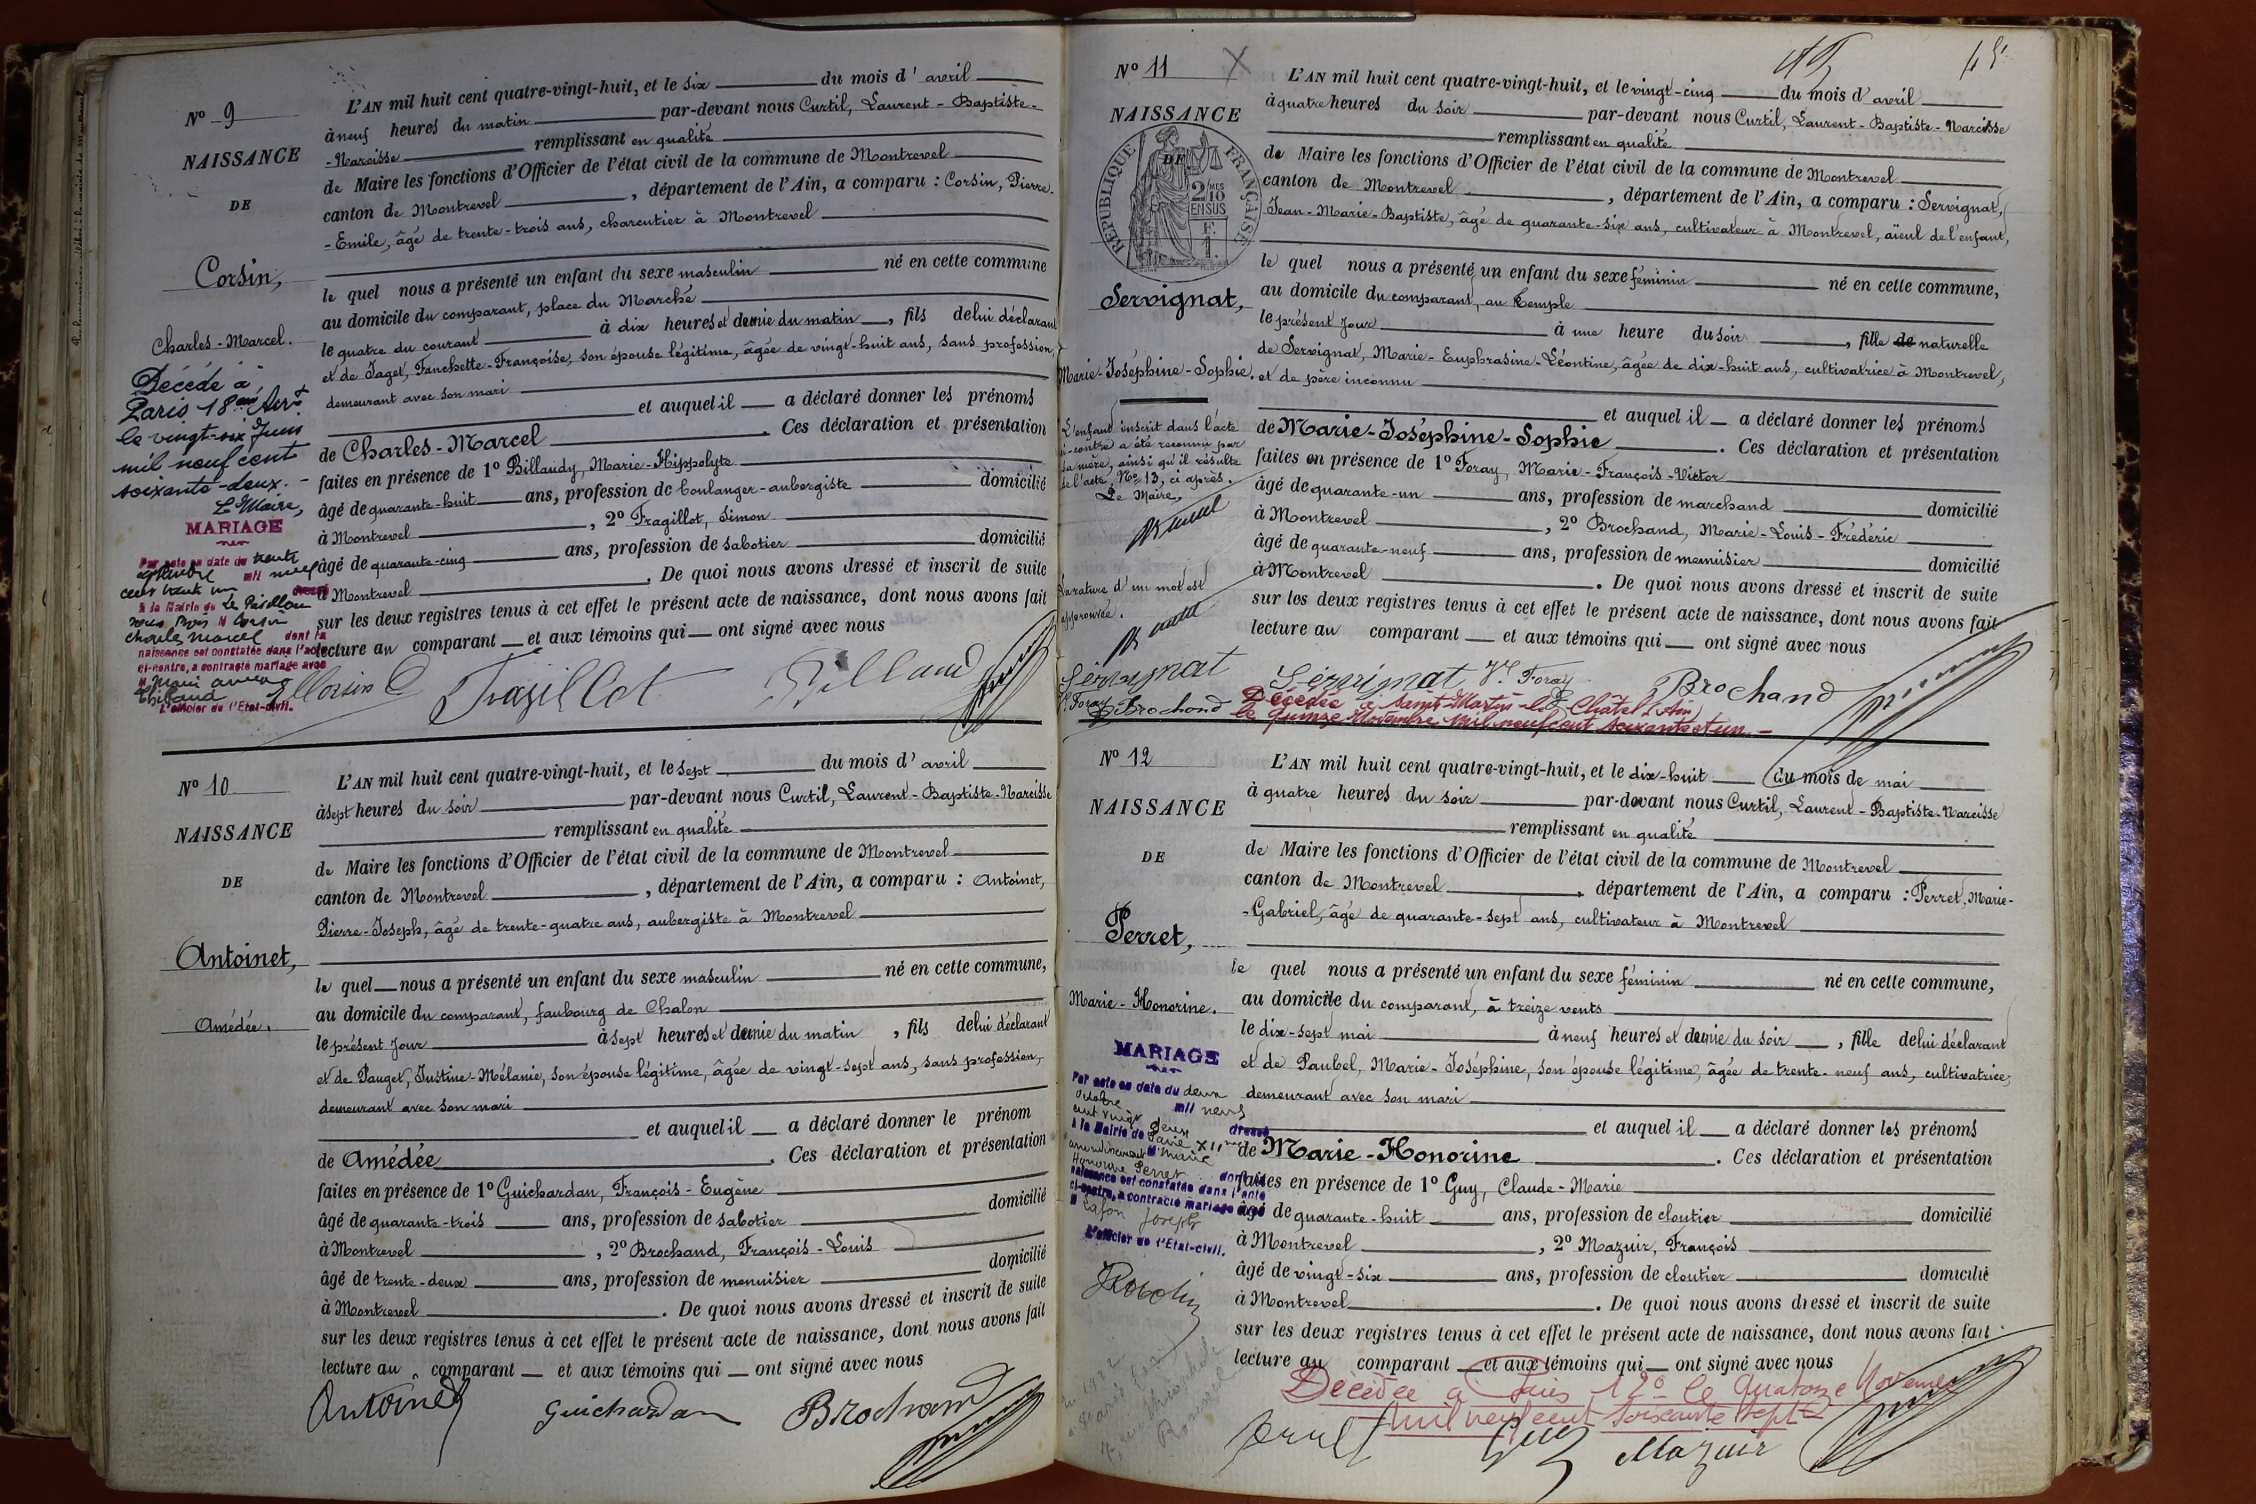 N° 9
NAISSANCE
DE
Corsin,
Charles-Marcel.
Décédé à
Paris 18ème Arrt
le vingt-six Juin
mil neuf cent
soixante-deux.-
Le Maire,
MARIAGE
Par acte en date du trente
mil neuf
cent trente un dressé
à la Mairie de Le Pavillon
sous Bois M Corsin
Charles Marcel dont la
naissance est constatée dans l'acte
ci-contre, a contracté mariage avec
M
Thibaud
L'officier de l'Etat-civil.
L'AN mil huit cent quatre-vingt-huit, et le six du mois d'avril
à neuf heures du matin par-devant nous Curtil, Laurent-Baptiste-
-Narcisse remplissant en qualité
de Maire les fonctions d'Officier de l'état civil de la commune de Montrevel
canton de Montrevel, département de l'Ain, a comparu : Corsin, Pierre-
-Emile, âgé de trente-trois ans, charcutier à Montrevel
le quel nous a présenté un enfant du sexe masculin né en cette commune
au domicile du comparant, place du Marché
le quatre du courant à dix heures et demie du matin, fils de lui déclarant
et de Jaget, Fanchette-Françoise, son épouse légitime, âgée de vingt-huit ans, sans profession,
demeurant avec son mari
et auquel il a déclaré donner les prénoms
de Charles-Marcel. Ces déclaration et présentation
faites en présence de 1° Billaudy, Marie-Hippolyte
âgé de quarante-huit ans, profession de boulanger-aubergiste domicilié
à Montrevel, 2° Fragillot, Simon
âgé de quarante-cinq ans, profession de sabotier domicilié
à Montrevel. De quoi nous avons dressé et inscrit de suite
sur les deux registres tenus à cet effet le présent acte de naissance, dont nous avons fait
lecture au comparant et aux témoins qui ont signé avec nous
E Corsin Fragillot Billaud
N° 10
NAISSANCE
DE
Antoinet,
Amédée.
L'AN mil huit cent quatre-vingt-huit, et le sept du mois d'avril
à sept heures du soir par-devant nous Curtil, Laurent-Baptiste-Narcisse
remplissant en qualité
de Maire les fonctions d'Officier de l'état civil de la commune de Montrevel
canton de Montrevel, département de l'Ain, a comparu : Antoinet,
Pierre-Joseph, âgé de trente-quatre ans, aubergiste à Montrevel
le quel nous a présenté un enfant du sexe masculin né en cette commune,
au domicile du comparant, faubourg de Chalon
le présent jour à sept heures et demie du matin, fils de lui déclarant
et de Pauget, Justine-Mélanie, son épouse légitime, âgée de vingt-sept ans, sans profession,
demeurant avec son mari
et auquel il a déclaré donner le prénom
de Amédée. Ces déclaration et présentation
faites en présence de 1° Guichardan, François-Eugène
âgé de quarante-trois ans, profession de sabotier domicilié
à Montrevel, 2° Brochand, François-Louis
âgé de trente-deux ans, profession de menuisier domicilié
à Montrevel. De quoi nous avons dressé et inscrit de suite
sur les deux registres tenus à cet effet le présent acte de naissance, dont nous avons fait
lecture au comparant et aux témoins qui ont signé avec nous
Antoinet Guichardan Brochand
45
N° 11
NAISSANCE
DE
RÉPUBLIQUE FRANÇAISE
2/10MES
EN SUS
Servignat,
Marie-Joséphine-Sophie.
L'enfant inscrit dans l'acte
ci-contre a été reconnu par
sa mère, ainsi qu'il résulte
de l'acte, N° 13, ci après.
Le Maire,
La rature d'un mot est
approuvée.
Servignat
V. Foray
Brochand
L'AN mil huit cent quatre-vingt-huit, et le vingt-cinq du mois d'avril
à quatre heures du soir par-devant nous Curtil, Laurent-Baptiste-Narcisse
remplissant en qualité
de Maire les fonctions d'Officier de l'état civil de la commune de Montrevel
canton de Montrevel, département de l'Ain, a comparu : Servignat,
Jean-Marie-Baptiste, âgé de quarante-six ans, cultivateur à Montrevel, aïeul de l'enfant,
le quel nous a présenté un enfant du sexe féminin né en cette commune,
au domicile du comparant, au Temple
le présent jour à une heure du soir, fille de naturelle
de Servignat, Marie-Euphrasine-Léontine, âgée de dix-huit ans, cultivatrice à Montrevel,
et de père inconnu
et auquel il a déclaré donner les prénoms
de Marie-Joséphine-Sophie. Ces déclaration et présentation
faites en présence de 1° Foray, Marie-François-Victor
âgé de quarante-un ans, profession de marchand domicilié
à Montrevel, 2° Brochand, Marie-Louis-Frédéric
âgé de quarante-neuf ans, profession de menuisier domicilié
à Montrevel. De quoi nous avons dressé et inscrit de suite
sur les deux registres tenus à cet effet le présent acte de naissance, dont nous avons fait
lecture au comparant et aux témoins qui ont signé avec nous
Servignat Vr Foray Brochand
Décédée à Saint-Martin-le-Châtel (Ain)
le quinze Novembre mil neuf cent soixante et un.-
N° 12
NAISSANCE
DE
Perret,
Marie-Honorine.
MARIAGE
Par acte en date du deux
octobre mil neuf
cent vingt deux dressé
à la Mairie de Paris XIIme
arrondissement M Marie
Honorine Perret dont la
naissance est constatée dans l'acte
ci-contre, a contracté mariage avec
M Lafon Joseph
L'officier de l'Etat-civil.
L'AN mil huit cent quatre-vingt-huit, et le dix-huit du mois de mai
à quatre heures du soir par-devant nous Curtil, Laurent-Baptiste-Narcisse
remplissant en qualité
de Maire les fonctions d'Officier de l'état civil de la commune de Montrevel
canton de Montrevel, département de l'Ain, a comparu : Perret, Marie-
-Gabriel, âgé de quarante-sept ans, cultivateur à Montrevel
le quel nous a présenté un enfant du sexe féminin né en cette commune,
au domicile du comparant, à treize vents
le dix-sept mai à neuf heures et demie du soir, fille de lui déclarant
et de Paubel, Marie-Joséphine, son épouse légitime, âgée de trente-neuf ans, cultivatrice,
demeurant avec son mari
et auquel il a déclaré donner les prénoms
de Marie-Honorine. Ces déclaration et présentation
faites en présence de 1° Guy, Claude-Marie
âgé de quarante-huit ans, profession de cloutier domicilié
à Montrevel, 2° Mazuir, François
âgé de vingt-six ans, profession de cloutier domicilié
à Montrevel. De quoi nous avons dressé et inscrit de suite
sur les deux registres tenus à cet effet le présent acte de naissance, dont nous avons fait
lecture au comparant et aux témoins qui ont signé avec nous
Décédée à Paris 12e le quatorze Novembre
mil neuf cent soixante sept
Perret Guy Mazuir